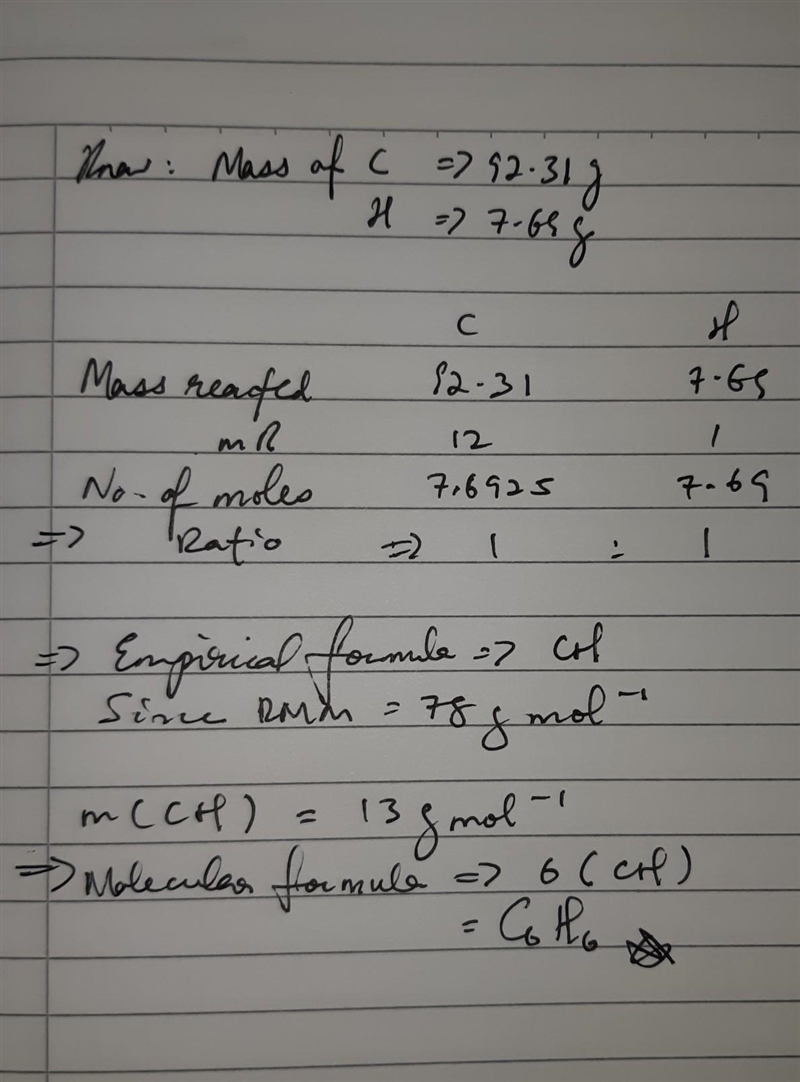 Know: Mass of C => 92.31 g
H => 7.69 g
C H
Mass reacted 92.31 7.69
mR 12 1
No. of moles 7.6925 7.69
=> Ratio => 1 : 1
=> Empirical formula => CH
Since RMM = 78 g mol⁻¹
m(CH) = 13 g mol⁻¹
=> Molecular formula => 6(CH)
= C₆H₆